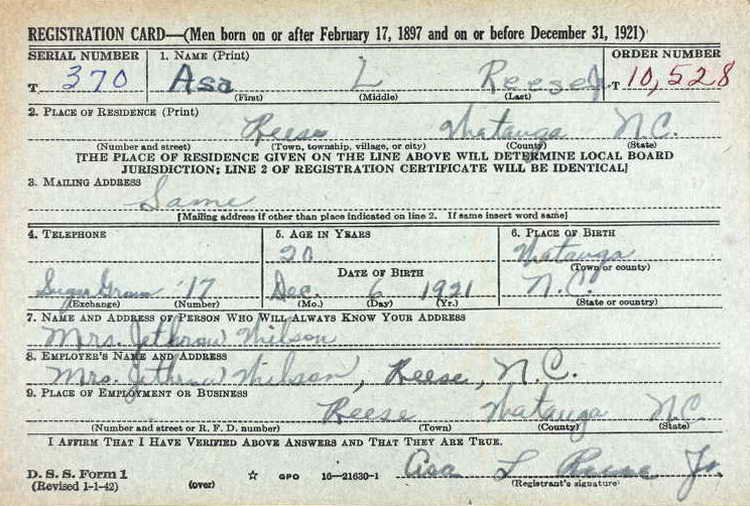 REGISTRATION CARD—(Men born on or after February 17, 1897 and on or before December 31, 1921)
SERIAL NUMBER 1. NAME (Print) ORDER NUMBER
T 370 Asa L Reese Jr. T 10,528
(First) (Middle) (Last)
2. PLACE OF RESIDENCE (Print)
Reese Watauga N.C.
(Number and street) (Town, township, village, or city) (County) (State)
[THE PLACE OF RESIDENCE GIVEN ON THE LINE ABOVE WILL DETERMINE LOCAL BOARD
JURISDICTION; LINE 2 OF REGISTRATION CERTIFICATE WILL BE IDENTICAL]
3. MAILING ADDRESS
Same
[Mailing address if other than place indicated on line 2. If same insert word same]
4. TELEPHONE 5. AGE IN YEARS 6. PLACE OF BIRTH
20 Watauga
(Town or county)
DATE OF BIRTH
Sugar Grove '17 Dec. 6 1921 N.C.
(Exchange) (Number) (Mo.) (Day) (Yr.) (State or country)
7. NAME AND ADDRESS OF PERSON WHO WILL ALWAYS KNOW YOUR ADDRESS
Mrs. Jethrow Wilson
8. EMPLOYER'S NAME AND ADDRESS
Mrs. Jethrow Wilson, Reese, N.C.
9. PLACE OF EMPLOYMENT OR BUSINESS
Reese Watauga N.C.
(Number and street or R. F. D. number) (Town) (County) (State)
I AFFIRM THAT I HAVE VERIFIED ABOVE ANSWERS AND THAT THEY ARE TRUE.
Asa L Reese Jr.
D. S. S. Form 1
(Revised 1-1-42) (over) ☆ GPO 16—21630-1 (Registrant's signature)